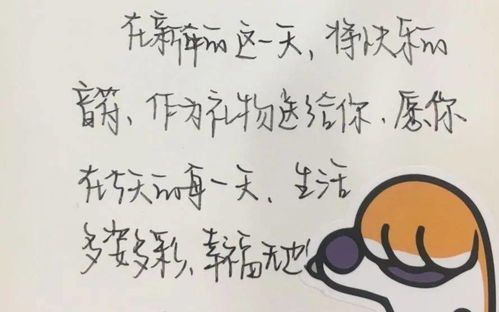 在新年的这一天，将快乐的
音符、作为礼物送给你、愿你
在天的每一天、生活
多姿多彩、幸福无